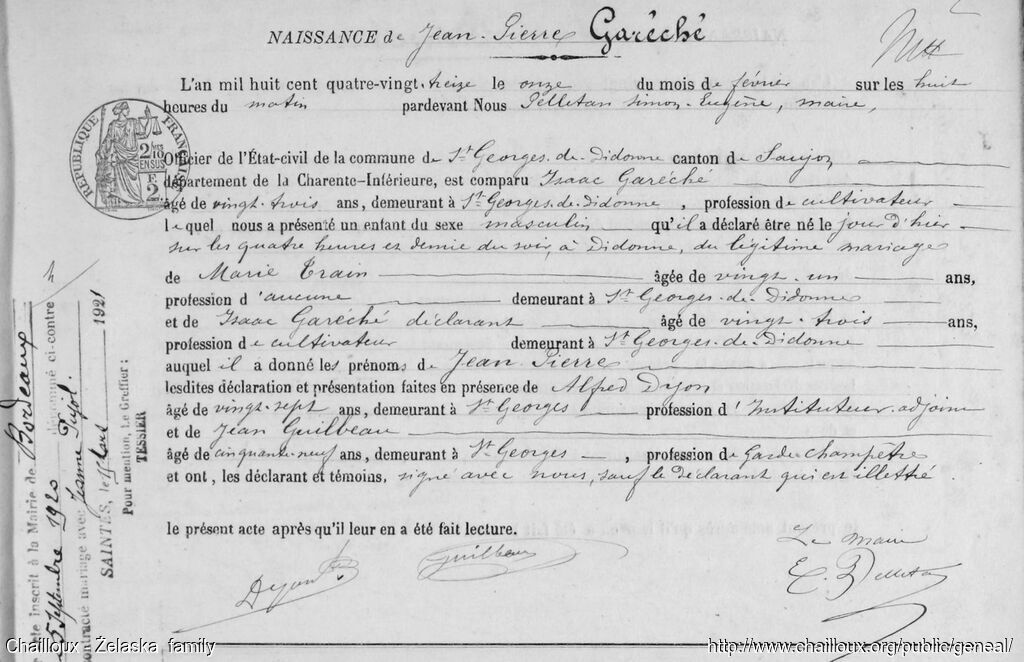 NAISSANCE de Jean-Pierre Garéché
L'an mil huit cent quatre-vingt-treize le onze du mois de février sur les huit
heures du matin pardevant Nous Pelletan Simon-Eugène, maire,
Officier de l'État-civil de la commune de St Georges-de-Didonne canton de Saujon
département de la Charente-Inférieure, est comparu Isaac Garéché
âgé de vingt-trois ans, demeurant à St Georges-de-Didonne, profession de cultivateur
lequel nous a présenté un enfant du sexe masculin qu'il a déclaré être né le jour d'hier
sur les quatre heures et demie du soir, à Didonne, du légitime mariage
de Marie Train âgée de vingt-un ans,
profession d'aucune demeurant à St Georges-de-Didonne
et de Isaac Garéché déclarant âgé de vingt-trois ans,
profession de cultivateur demeurant à St Georges-de-Didonne
auquel il a donné les prénoms de Jean-Pierre
lesdites déclaration et présentation faites en présence de Alfred Dijon
âgé de vingt-sept ans, demeurant à St Georges profession d'Instituteur-adjoint
et de Jean Guilbeau
âgé de cinquante-neuf ans, demeurant à St Georges, profession de Garde champêtre
et ont, les déclarant et témoins, signé avec nous, sauf le déclarant qui est illettré.
le présent acte après qu'il leur en a été fait lecture.
Le Maire
Guilbeau
E. Pelletan
RÉPUBLIQUE FRANÇAISE
2/10 EN SUS
2 F
inscrit à la Mairie de Bordeaux
5 Septembre 1920 dénommé ci-contre a
contracté mariage avec Jeanne Pujol.
SAINTES, le 1921
Pour mention, Le Greffier :
TESSIER
Chailloux - Żelaska family
http://www.chailloux.org/public/geneal/